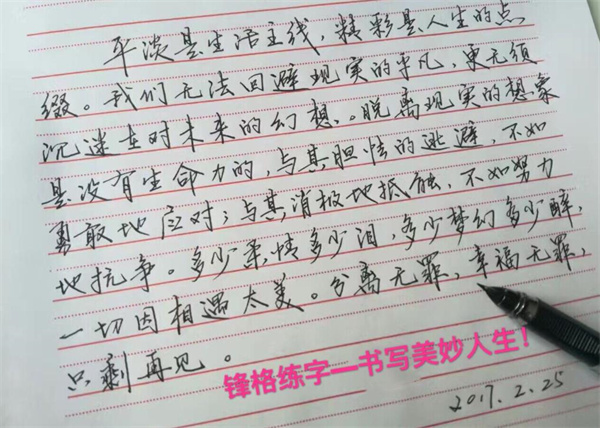 平淡是生活主线，精彩是人生的点
缀。我们无法回避现实的平凡，更无须
沉迷在对未来的幻想。脱离现实的想象
是没有生命力的，与其胆怯的逃避，不如
勇敢地应对；与其消极地抵触，不如努力
地抗争。多少柔情多少泪，多少梦幻多少醉，
一切因相遇太美。分离无罪，幸福无罪，
只剩再见。
锋格练字—书写美妙人生！
2017.2.25